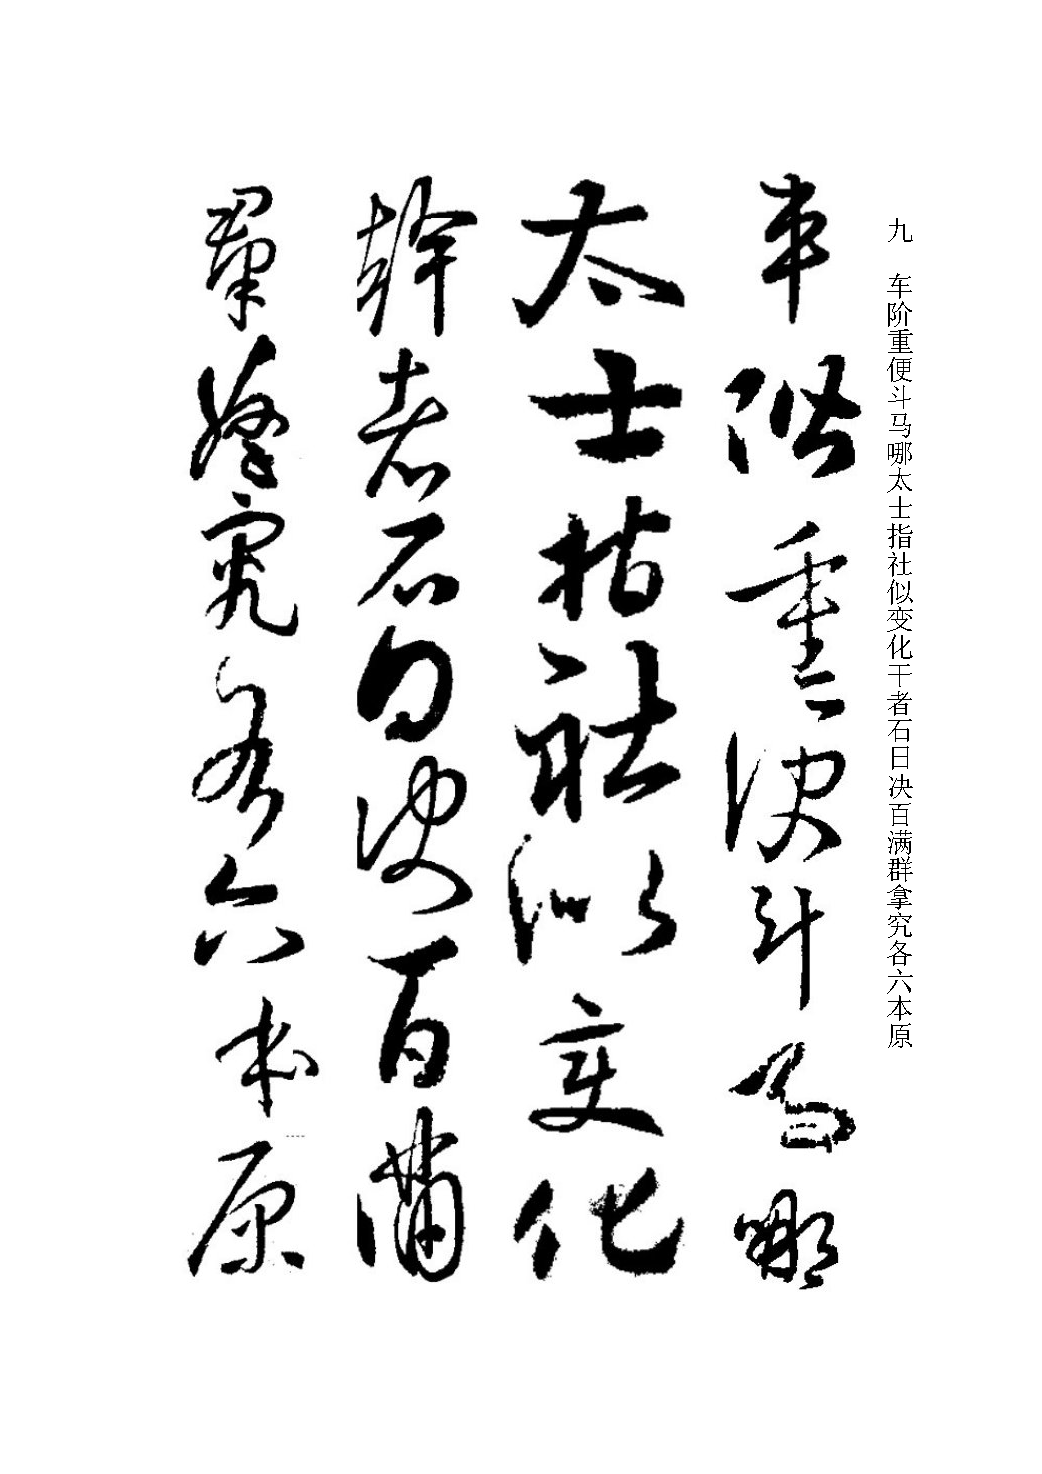 九 车阶重便斗马哪太士指社似变化干者石日决百满群拿究各六本原
車階重便斗馬哪
太士指社似变化
幹者石日决百滿
羣拿究各六本原